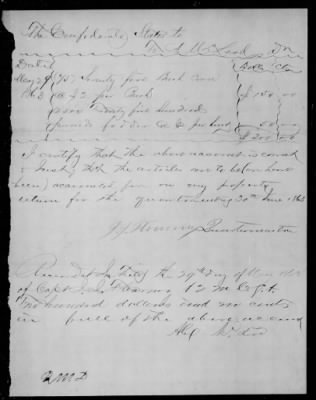 The Confederate States to
Dr
Dolls Cts
May 29 (75) Seventy five Bush corn
1863 @ $2 per Bush $150 00
2500 Twenty five hundred
pounds fodder @ $2 per hund 50 00
$200 00
I certify that the above account is correct
& Just, that the articles are to be or have
been) accounted for on my property
return for the quarter ending 30th June 1863
Quartermaster
Received the 29th Day of May 1863
of Capt
Two hundred dollars and no cents
in full of the above account